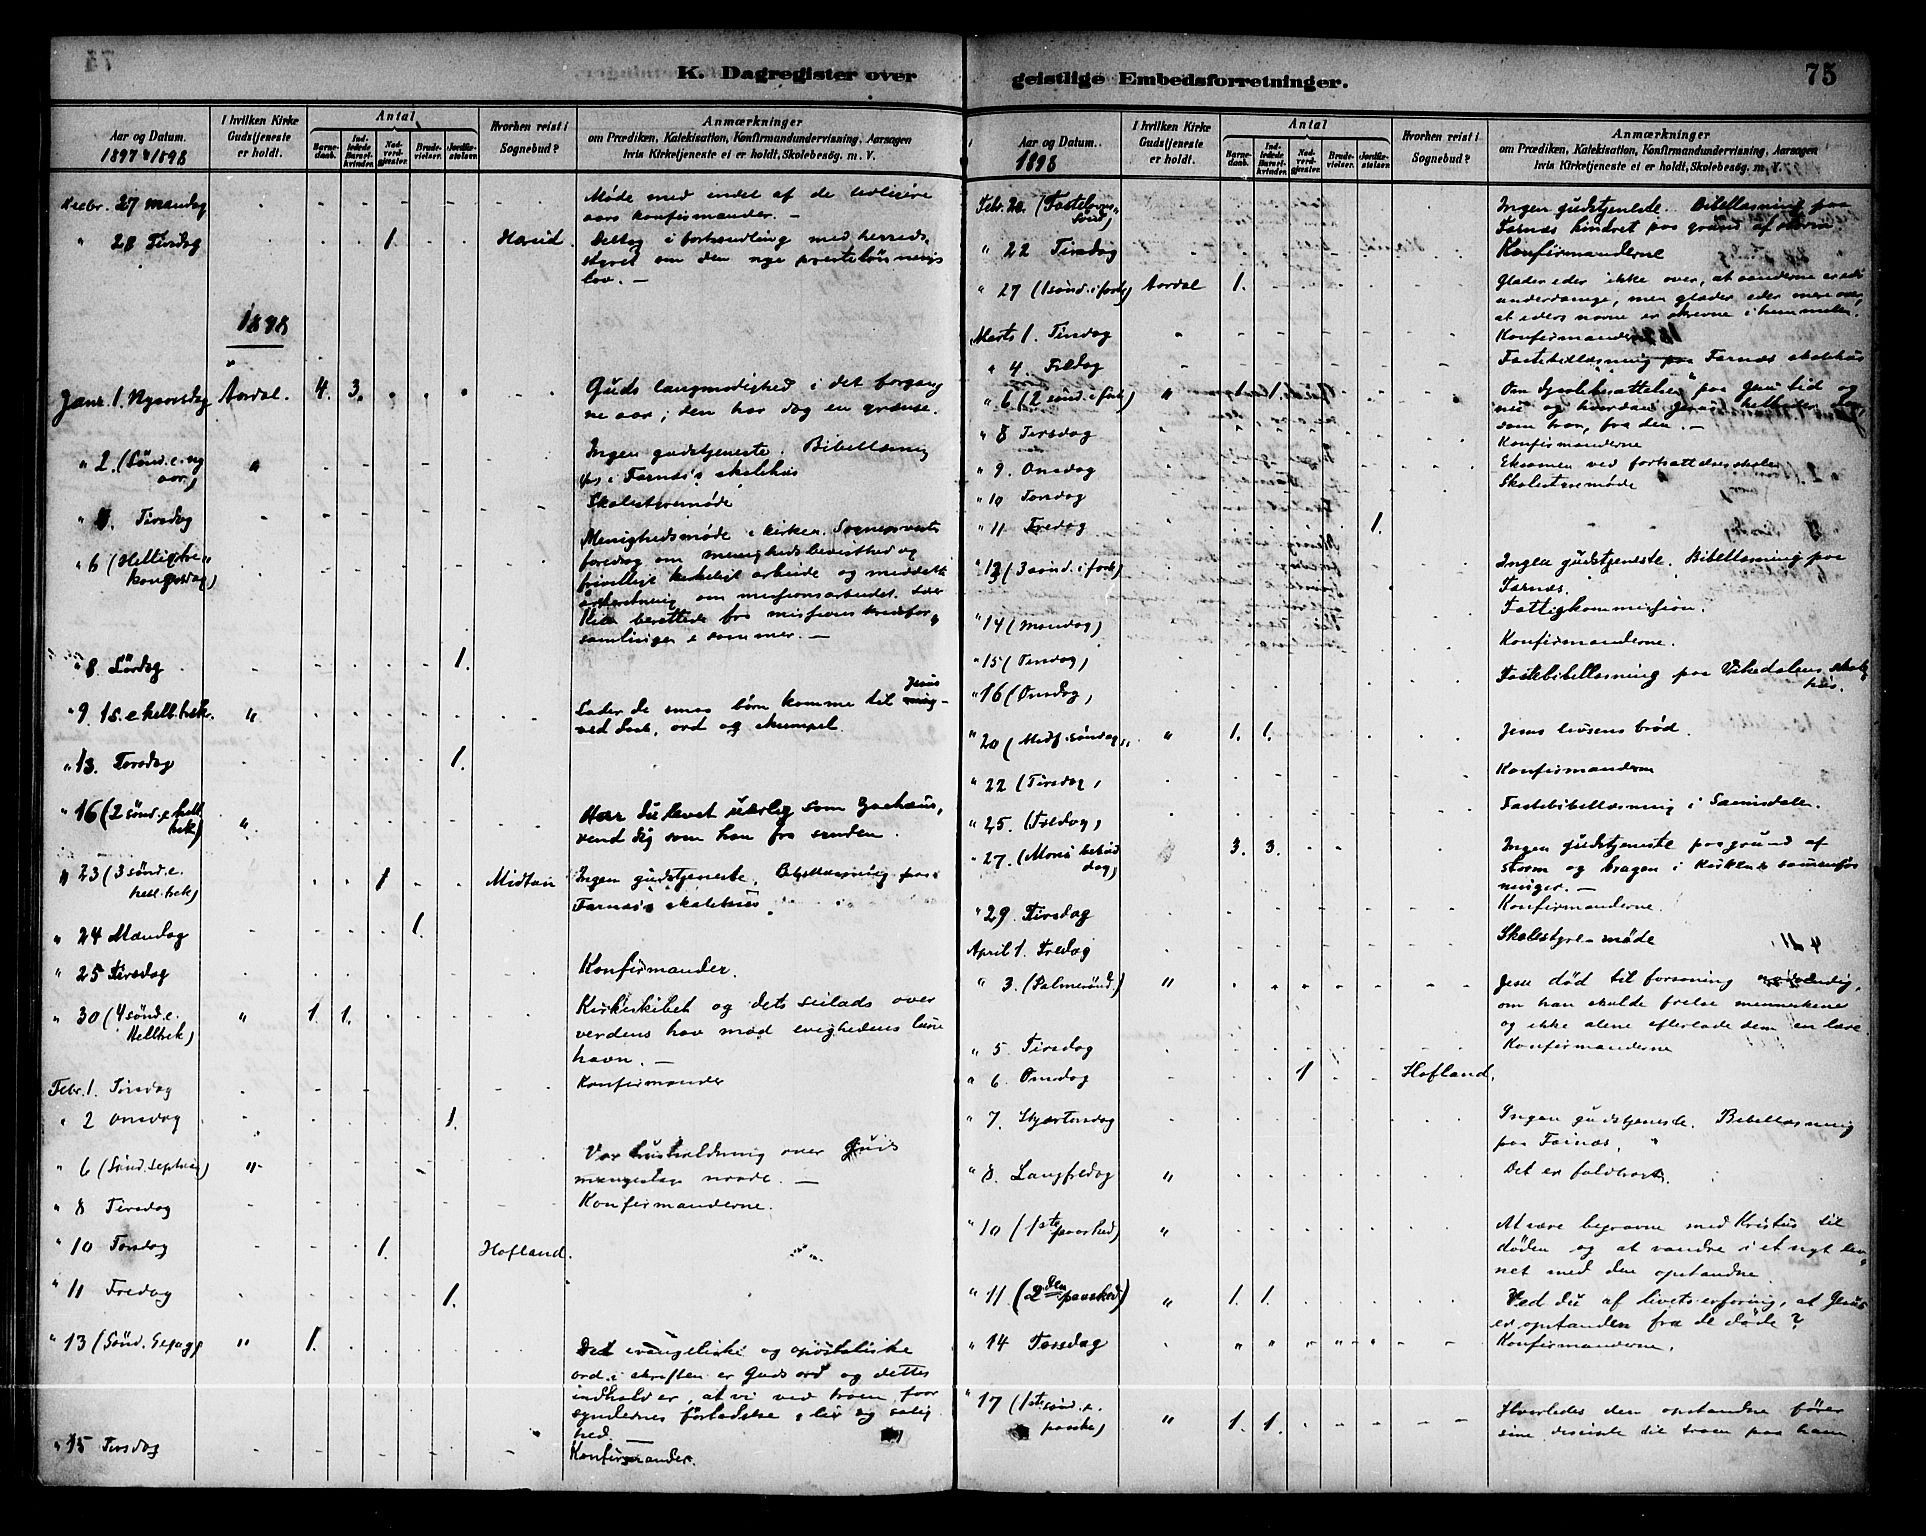 K. Dagregister over
Aar og Datum.
1897 & 1898
I hvilken Kirke
Gudstjeneste
er holdt.
Antal
Barne-
daab.
Ind-
ledede
Barsel-
kvinder.
Nad-
verd-
gjester.
Brude-
vielser.
Jordfæ-
stelser.
Hvorhen reist i
Sognebud?
Anmærkninger
om Prædiken, Katekisation, Konfirmandundervisning, Aarsagen
hvis Kirketjeneste ei er holdt, Skolebesøg. m. V.
Decbr. 27 mandag
Møde med endel af de tidligere
aars konfirmander. —
" 28 Tirsdag 1. Deltog i forhandling med herreds-
styret om den nye prestelønnings
lov. —
1898
Janr. 1. Nyaarsdag Aardal. 4. 3. Guds langmodighed i det forgang
ne aar; den har dog en grænse.
" 2. (Sønd. e. ny
aar) " Ingen gudstjeneste. Bibellæsning
i Farnæs skolehus
" Tirsdag Skolestyremøde
" 6 (Hellig tre
kongersdag) Menighedsmøde i kirken. Sogneprestens
foredrag om menighedsbevisthed og
frivilligt kirkeligt arbeide og meddelte
om missionsarbeidet.
berettede fra missions kredsfor-
samlingen i sommer. —
" 8 Lørdag 1.
" 9 1 s. e. hell. trek. " Lader de smaa børn komme til Jesus
ved daab, ord og eksempel.
" 13. Torsdag 1.
" 16 (2 sønd. e. hell.
trek) " Har du levet uærlig som Zachæus,
vend dig som han fra synden.
" 23 (3 sønd. e.
hell. trek) 1 Midtun Ingen gudstjeneste. Bibellæsning paa
Farnæs skolehus
" 24 Mandag 1.
" 25 Tirsdag Konfirmander.
" 30 (4 sønd. e.
Helltrek) " 1. 1. Kirkeskibet og dets seilads over
verdens hav mod evighedens lune
havn. —
Febr. 1. Tirsdag Konfirmander
" 2 Onsdag 1.
" 6 (Sønd. Septua) " Vor husholdning over Guds
mangeslags naade. —
" 8 Tirsdag Konfirmanderne.
" 10 Torsdag 1. Hofland.
" 11 Fredag 1.
" 13 (Sønd. Sexag) " 1. Det evangeliske og apostoliske
ord i skriften er Guds ord og dettes
indhold er, at vi ved troen faar
syndernes forladelse, liv og salig
hed. —
" 15 Tirsdag Konfirmander.
geistlige Embedsforretninger.
75
Aar og Datum.
1898
I hvilken Kirke
Gudstjeneste
er holdt.
Antal
Barne-
daab.
Ind-
ledede
Barsel-
kvinder.
Nad-
verd-
gjester.
Brude-
vielser.
Jordfæ-
stelser.
Hvorhen reist i
Sognebud?
Anmærkninger
om Prædiken, Katekisation, Konfirmandundervisning, Aarsagen
hvis Kirketjeneste ei er holdt, Skolebesøg. m. V.
Febr. 20. (Fastelavns-
sønd) Ingen gudstjeneste. Bibellæsning paa
Farnæs hindret paa grund af storm
" 22 Tirsdag Konfirmanderne
" 27 (1 sønd. i faste) Aardal 1. Glæder eder ikke over, at aanderne er eder
underdanige, men glæder eder mere over,
at eders navne er skrevne i himmelen.
Marts 1. Tirsdag Konfirmander
" 4 Fredag Fastebibellæsning paa Farnæs skolehus
" 6 (2 sønd. i fast) " Om djævlebesættelser paa Jesu tid og
nu og hvordan
som han, fra den. —
" 8 Tirsdag Konfirmanderne
" 9. Onsdag Eksamen ved fortsættelsesskolen
" 10 Torsdag Skolestyremøde
" 11 Fredag 1.
" 13 (3 sønd. i fast) Ingen gudstjeneste. Bibellæsning paa
Farnæs.
" 14 (mandag) Fattigkommission.
" 15 (Tirsdag) Konfirmanderne.
" 16 (Onsdag) Fastebibellæsning paa Vikedalens skole
hus.
" 20 (Midf. søndag) " 1. 1. Jesus livsens brød.
" 22 (Tirsdag) Konfirmanderne
" 25. (Fredag) Fastebibellæsning i Seimsdalen.
" 27. (Mariæ bebud
dag) 3. 3. Ingen gudstjeneste paa grund af
storm og tragen i kirken sammenføi
ninger. —
" 29. Tirsdag Konfirmanderne.
April 1. Fredag Skolestyre-møde
" 3. (Palmesønd.) " Jesu død til forsoning nødvendig,
om han skulde frelse menneskene
og ikke alene efterlade dem en lære.
" 5. Tirsdag Konfirmanderne
" 6. Onsdag 1 Hofland.
" 7. Skjærtorsdag Ingen gudstjeneste. Bibellæsning
paa Farnæs.
" 8. Langfredag " Det er fuldbragt.
" 10 (1ste paasked) " At være begravne med Kristus til
døden og at vandre i et nyt lev-
net med den opstandne.
" 11 (2den paasked) " 1. 1. Ved du af livets erfaring, at Jesus
er opstanden fra de døde?
" 14 Torsdag Konfirmanderne.
" 17 (1ste sønd. e.
paaske) " 1. 1. Hvorledes den opstandne fører
sine disciple til troen paa ham.